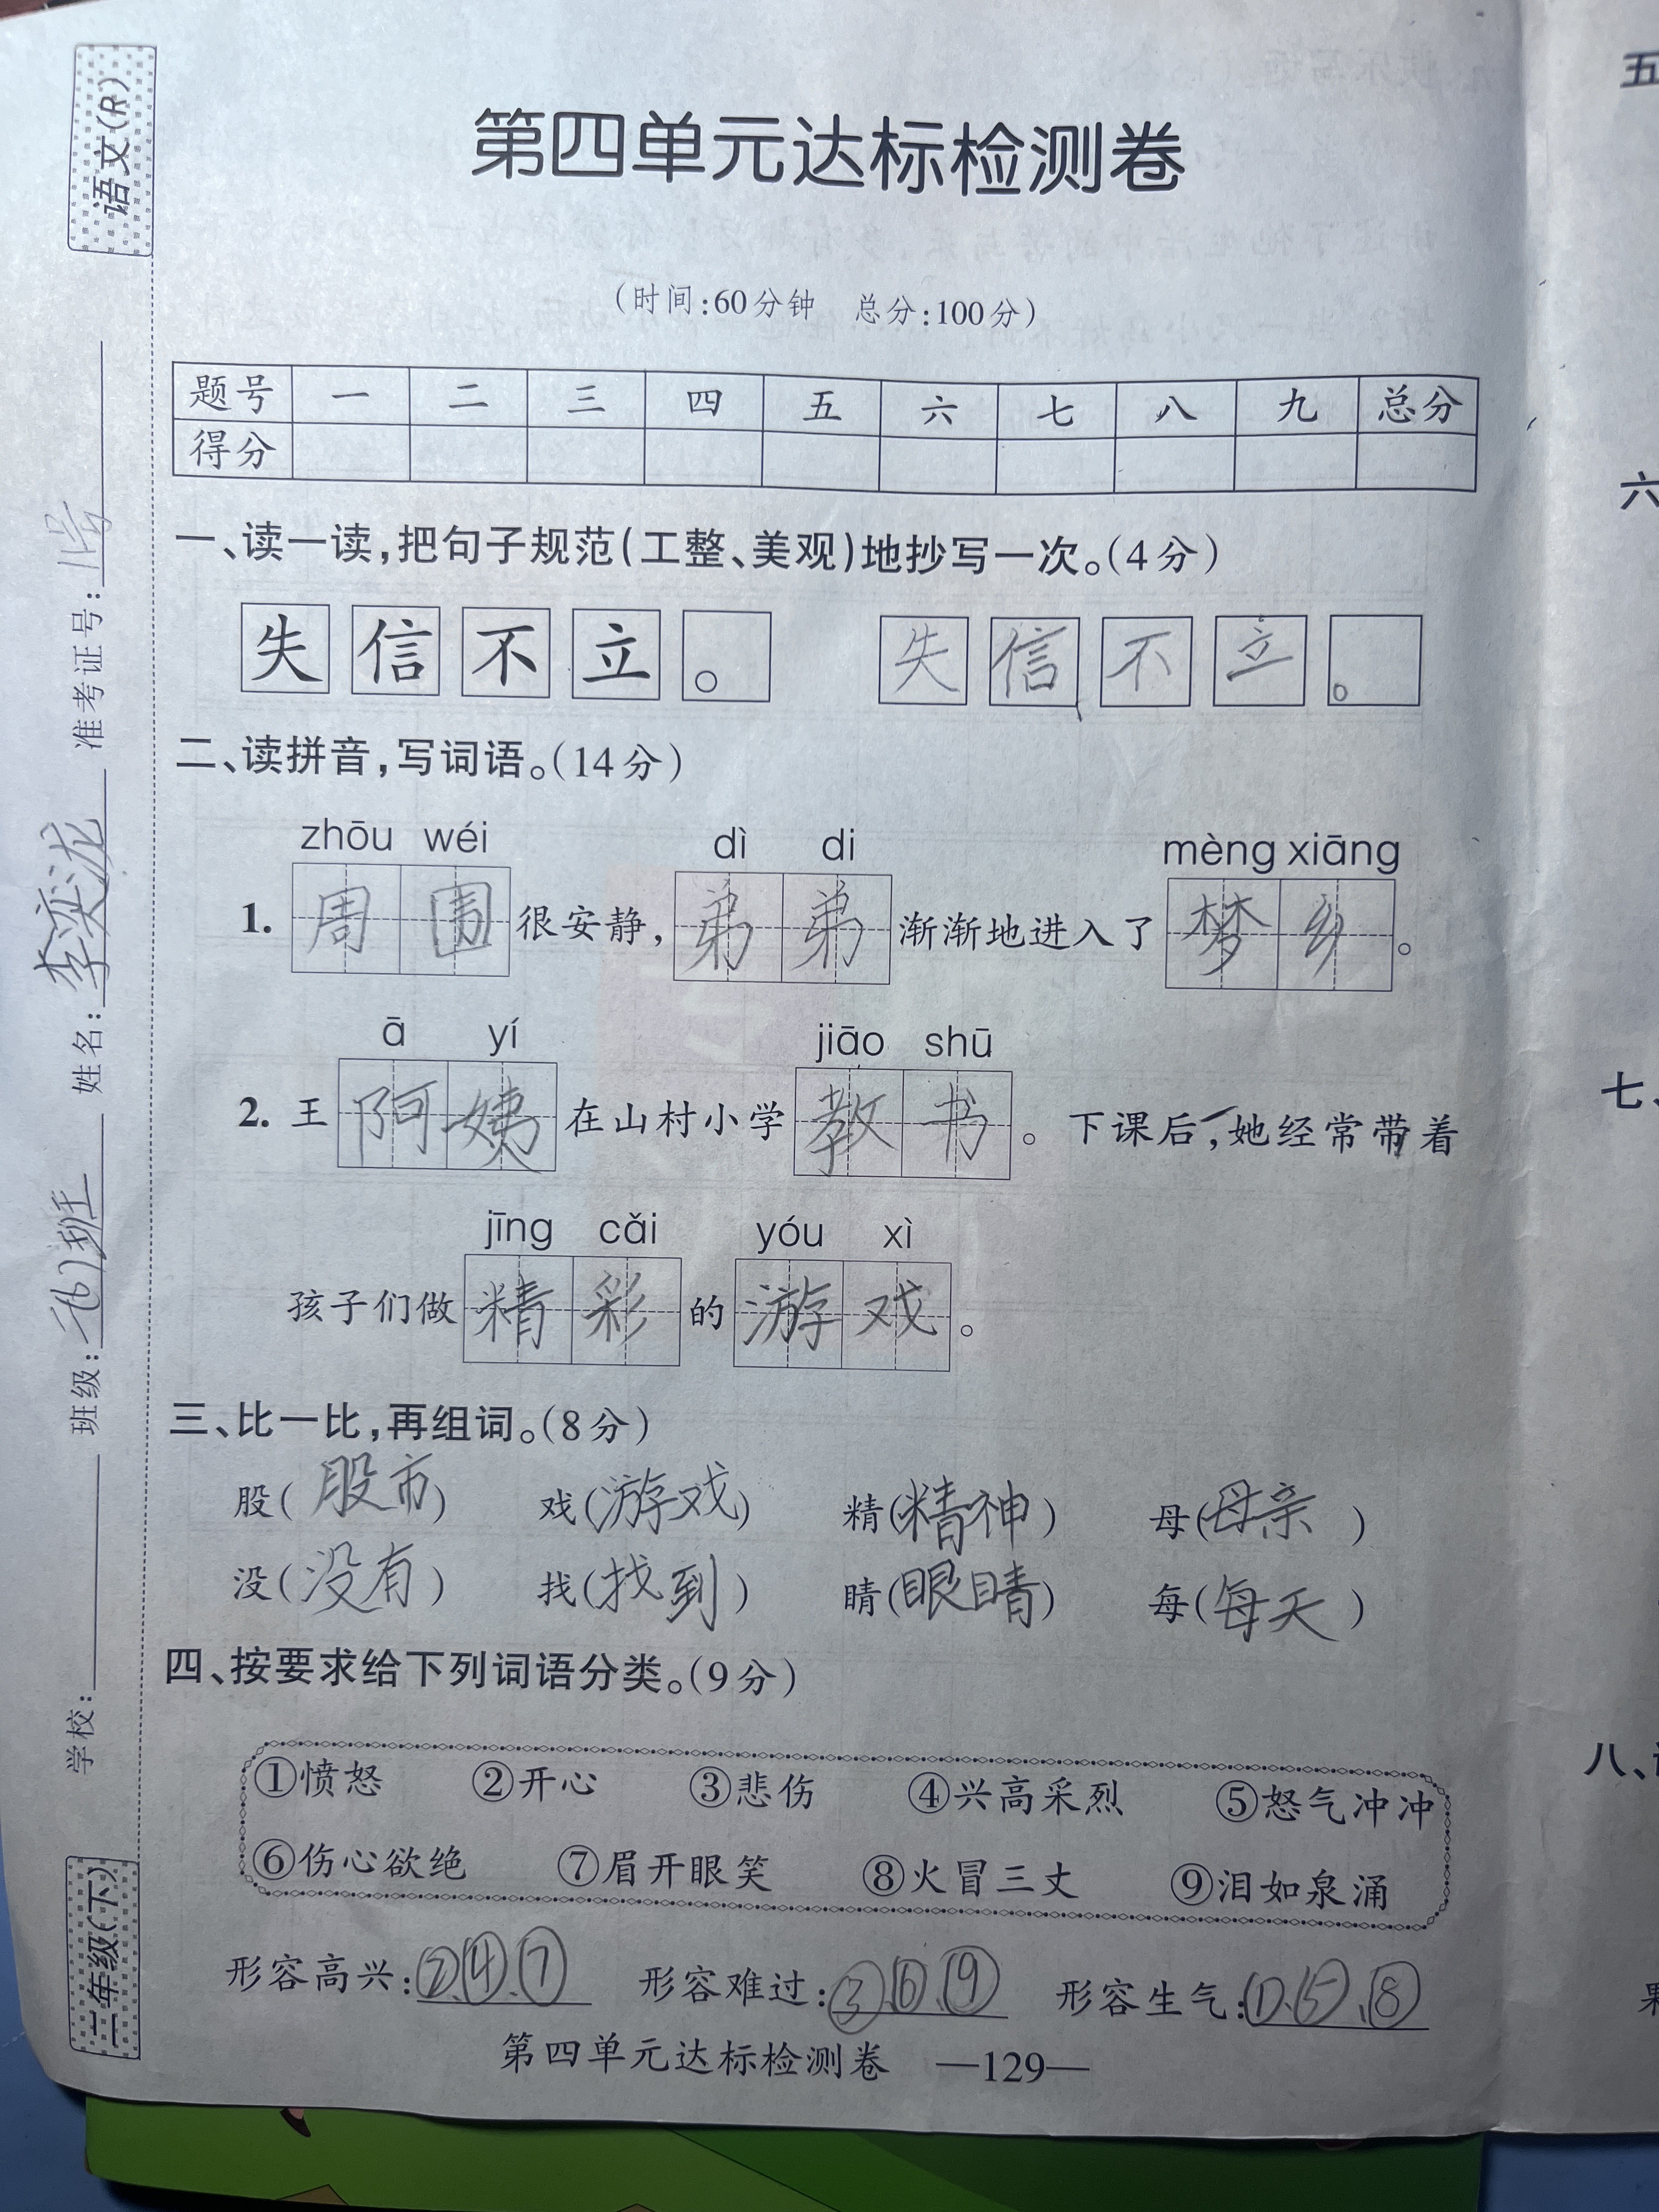 第四单元达标检测卷
(时间:60分钟 总分:100分)
题号 一 二 三 四 五 六 七 八 九 总分
得分
一、读一读,把句子规范(工整、美观)地抄写一次。(4分)
失信不立。 失信不立。
二、读拼音,写词语。(14分)
zhōu wéi dì di mèng xiāng
1. 周围很安静,弟弟渐渐地进入了梦乡。
ā yí jiāo shū
2. 王阿姨在山村小学教书。下课后,她经常带着
jīng cǎi yóu xì
孩子们做精彩的游戏。
三、比一比,再组词。(8分)
股(股市) 戏(游戏) 精(精神) 母(母亲)
没(没有) 找(找到) 睛(眼睛) 每(每天)
四、按要求给下列词语分类。(9分)
①愤怒 ②开心 ③悲伤 ④兴高采烈 ⑤怒气冲冲
⑥伤心欲绝 ⑦眉开眼笑 ⑧火冒三丈 ⑨泪如泉涌
形容高兴:②、④、⑦ 形容难过:③、⑥、⑨ 形容生气:①、⑤、⑧
第四单元达标检测卷 —129—
语文(R)
二年级(下)
学校: 班级: 姓名: 准考证号:11号
五
六
七、
八、